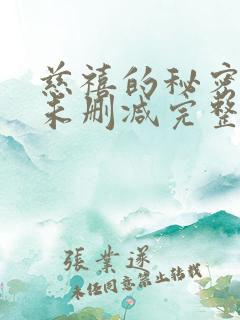 慈禧的秘密
未删减完整
張業遂
未经同意禁止转载